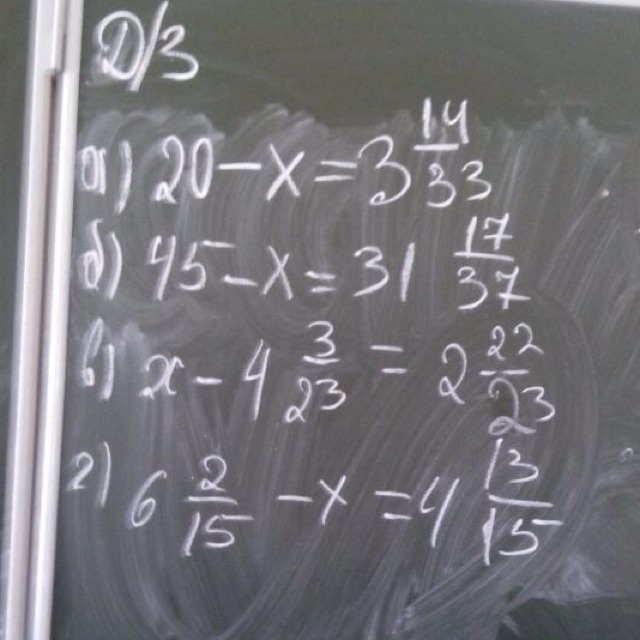 Д/З
а) 20 - x = 3 14/33
б) 45 - x = 31 17/37
в) x - 4 3/23 = 2 22/23
г) 6 2/15 - x = 4 13/15